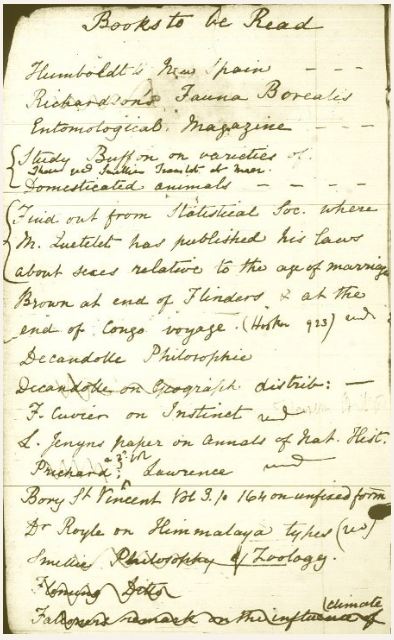 Books to be Read
Humboldt's New Spain - - -
Richardson's Fauna Borealis
Entomological Magazine - - -
Study Buffon on varieties of
Domesticated animals - - - -
Find out from Statistical Soc. where
M. Quetelet has published his laws
about sexes relative to the age of marriage
Brown at end of Flinders & at the
end of Congo voyage. (Hooker 923) red
Decandolle Philosophie
Decandolle on Geograph distrib: —
F. Cuvier on Instinct red
L. Jenyns paper on Annals of Nat. Hist.
Prichard; a 3d vol Lawrence red
Bory St Vincent Vol 3. p 164 on unfixed form
Dr Royle on Himmalaya types (red)
Smellie Philosophy of Zoology.
Fleming Ditto
Falconers remark on the influence of climate